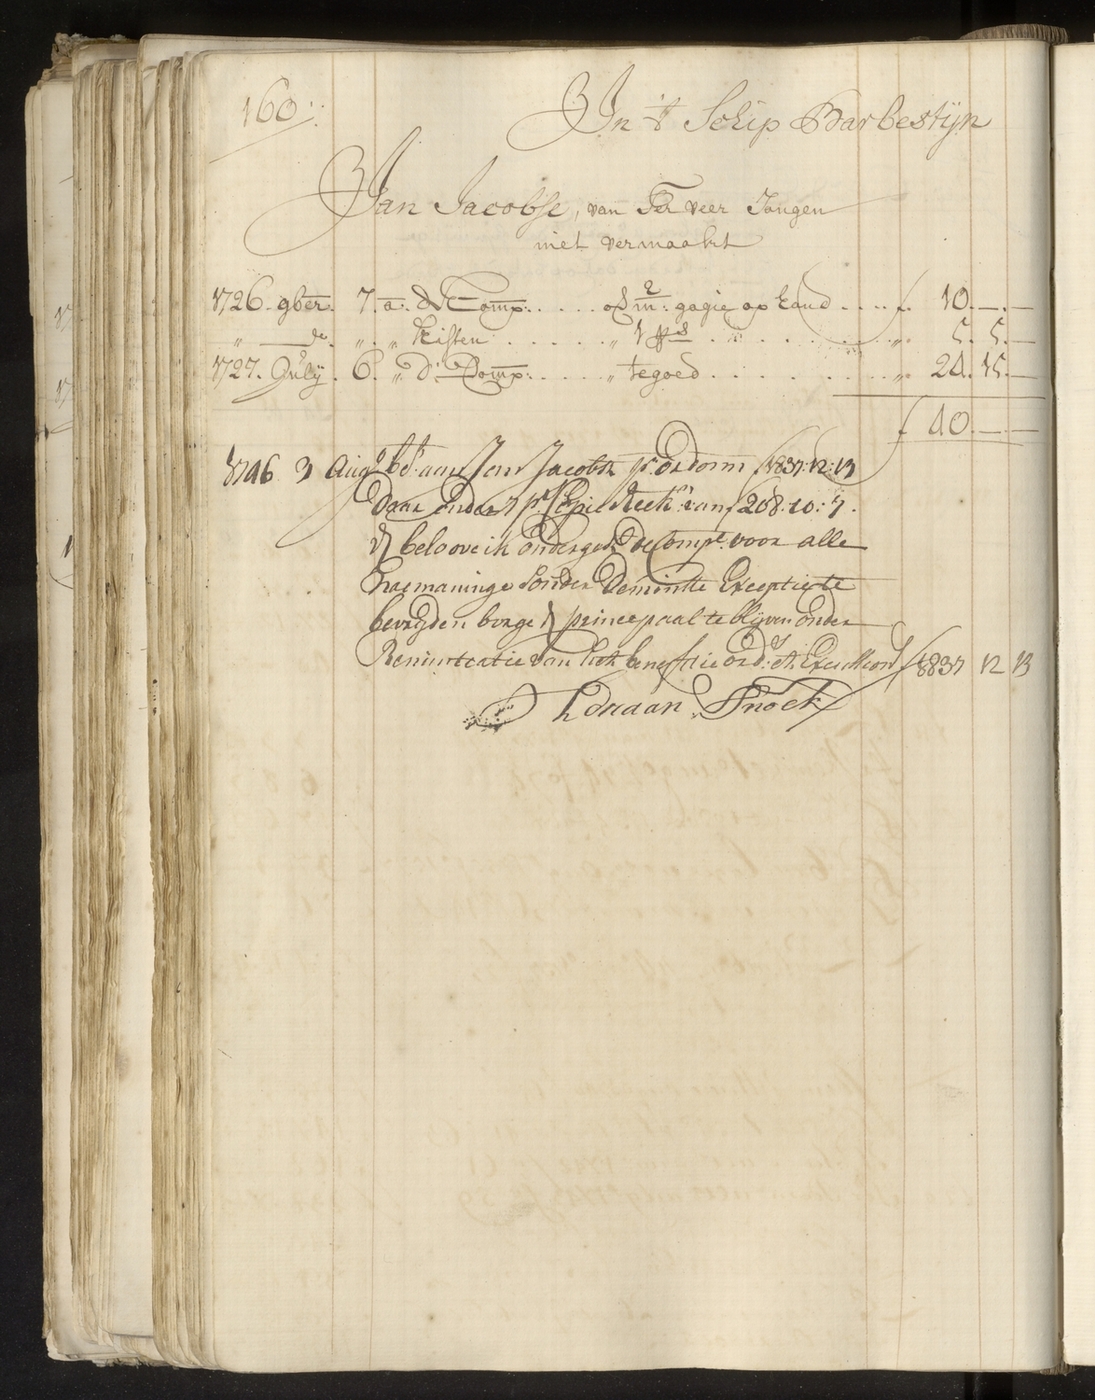 160:
In 't Schip Barbestijn
Jan Jacobse, van Ter veer Jongen
niet vermaakt
1726. 9ber. 7. a. d'E Comp: . . . . . of 2 m: gagie op hand . . . . f. 10.—.—
" — do. " " kisten . . . . . " 1 ps . . . . . . " 5. 5.—
1727. July. 6. " d'E Comp: . . . . . " tegoed . . . . . . . " 24. 15.—
f 40.—.—
1746 3 Augs bd: aan Jan Jacobse pr. ordonn f 1837:12:13
daar onder pr. Reekn: van f 208:10:7.
en beloove ik ondergesz. de Comp: voor alle
naemaninge sonder de minste Exceptie te
bevryden borge en principaal te blijven onder
Renuntiatie van het benefitie ord: et Excussion f 1837 12 13
Adriaan Snoek